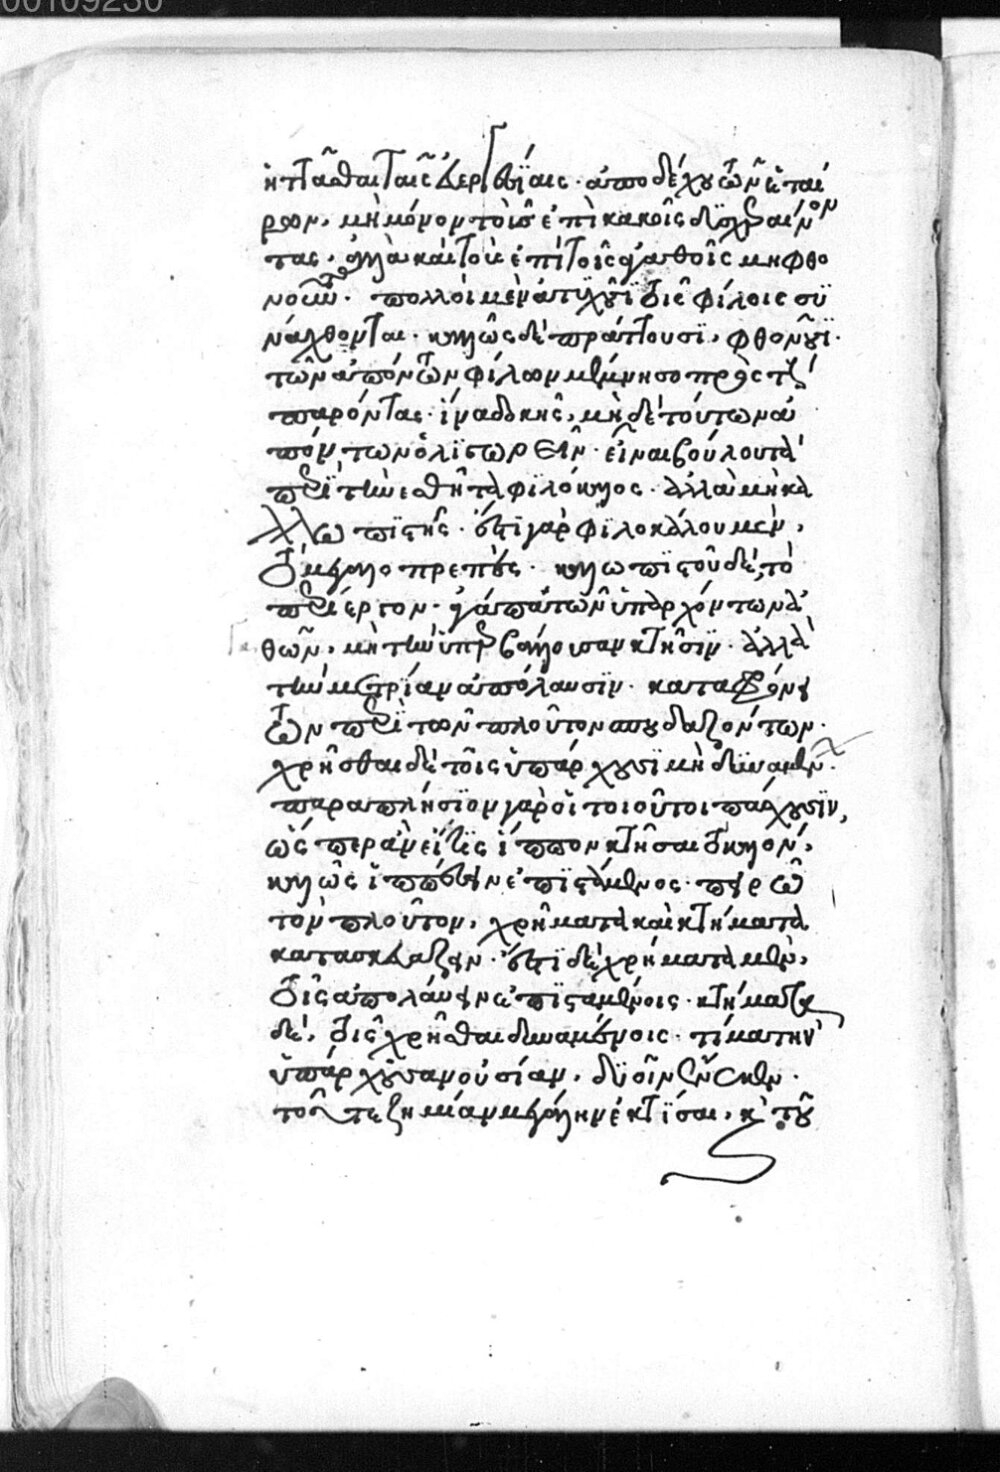 00109230
ἡττᾶσθαι ταῖς εὐεργεσίαις· ἀποδέχου τῶν ἑταί
ρων, μὴ μόνον τοὺς ἐπὶ κακοῖς δυσχεραίνον
τας, ἀλλὰ καὶ τοὺς ἐπὶ τοῖς ἀγαθοῖς μὴ φθο
νοῦντας· πολλοὶ μὲν ἀτυχοῦσι τοῖς φίλοις συ
νάχθονται· καλῶς δὲ πράττουσι, φθονοῦσι·
τῶν ἀπόντων φίλων μέμνησο πρὸς τοὺς
παρόντας· ἵνα δοκῇς, μὴ δὲ τούτων ἀ
πόντων ὀλιγωρεῖν· εἶναι βούλου τὰ
περὶ τὴν ἐσθῆτα φιλόκαλος· ἀλλὰ μὴ κα
λλωπιστής· ἔστι γὰρ φιλοκάλου μὲν,
τὸ μεγαλοπρεπές· καλλωπιστοῦ δὲ, τὸ
περίεργον· ἀγάπα τῶν ὑπαρχόντων ἀγα
θῶν, μὴ τὴν ὑπερβάλλουσαν κτῆσιν· ἀλλὰ
τὴν μετρίαν ἀπόλαυσιν· καταφρόνει
τῶν περὶ τὸν πλοῦτον σπουδαζόντων·
χρῆσθαι δὲ τοῖς ὑπάρχουσι μὴ δυναμένων·
παραπλήσιον γὰρ οἱ τοιοῦτοι πάσχουσιν,
ὥσπερ ἂν εἴ τις ἵππον κτήσαιτο καλὸν,
κακῶς ἱππεύειν ἐπιστάμενος· πειρῶ
τὸν πλοῦτον, χρήματα καὶ κτήματα
κατασκευάζειν· ἔστι δὲ χρήματα μὲν,
τοῖς ἀπολαύειν ἐπισταμένοις· κτήματα
δὲ, τοῖς χρῆσθαι δυναμένοις· τίμα τὴν
ὑπάρχουσαν οὐσίαν, δυοῖν ἕνεκεν·
τοῦ τε ζημίαν μεγάλην ἐκτῖσαι, καὶ τοῦ